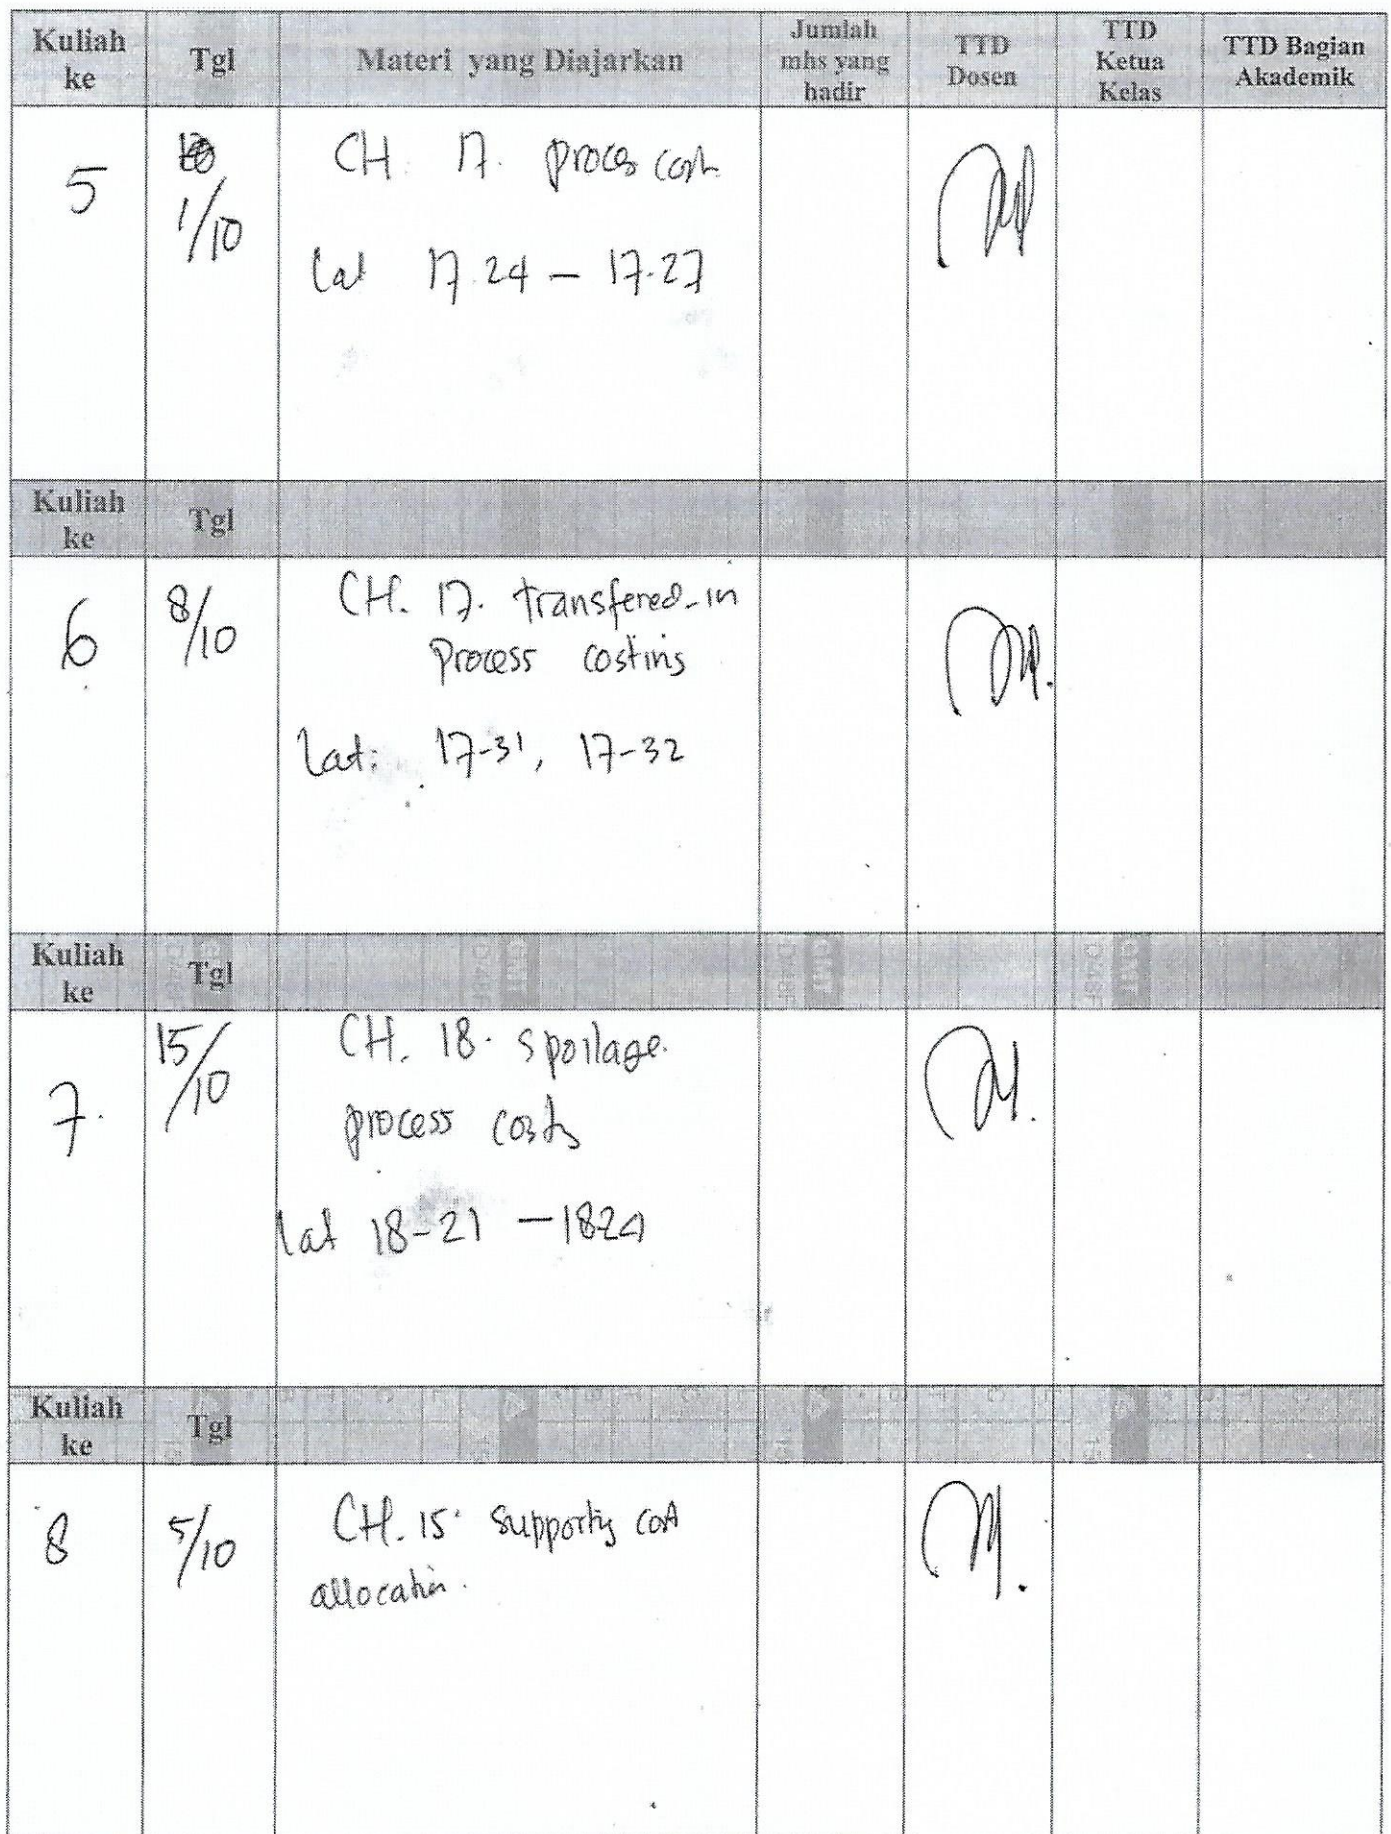 Kuliah ke Tgl Materi yang Diajarkan Jumlah mhs yang hadir TTD Dosen TTD Ketua Kelas TTD Bagian Akademik
5
1/10
CH. 17. proces cost
lat 17.24 – 17.27
Kuliah ke Tgl
6
8/10
CH. 17. transfered-in
process costing
lat: 17-31, 17-32
Kuliah ke Tgl
7.
15/10
CH. 18. spoilage.
process costg
lat 18-21 – 1824
Kuliah ke Tgl
8
5/10
CH. 15. supportig cost
allocation.